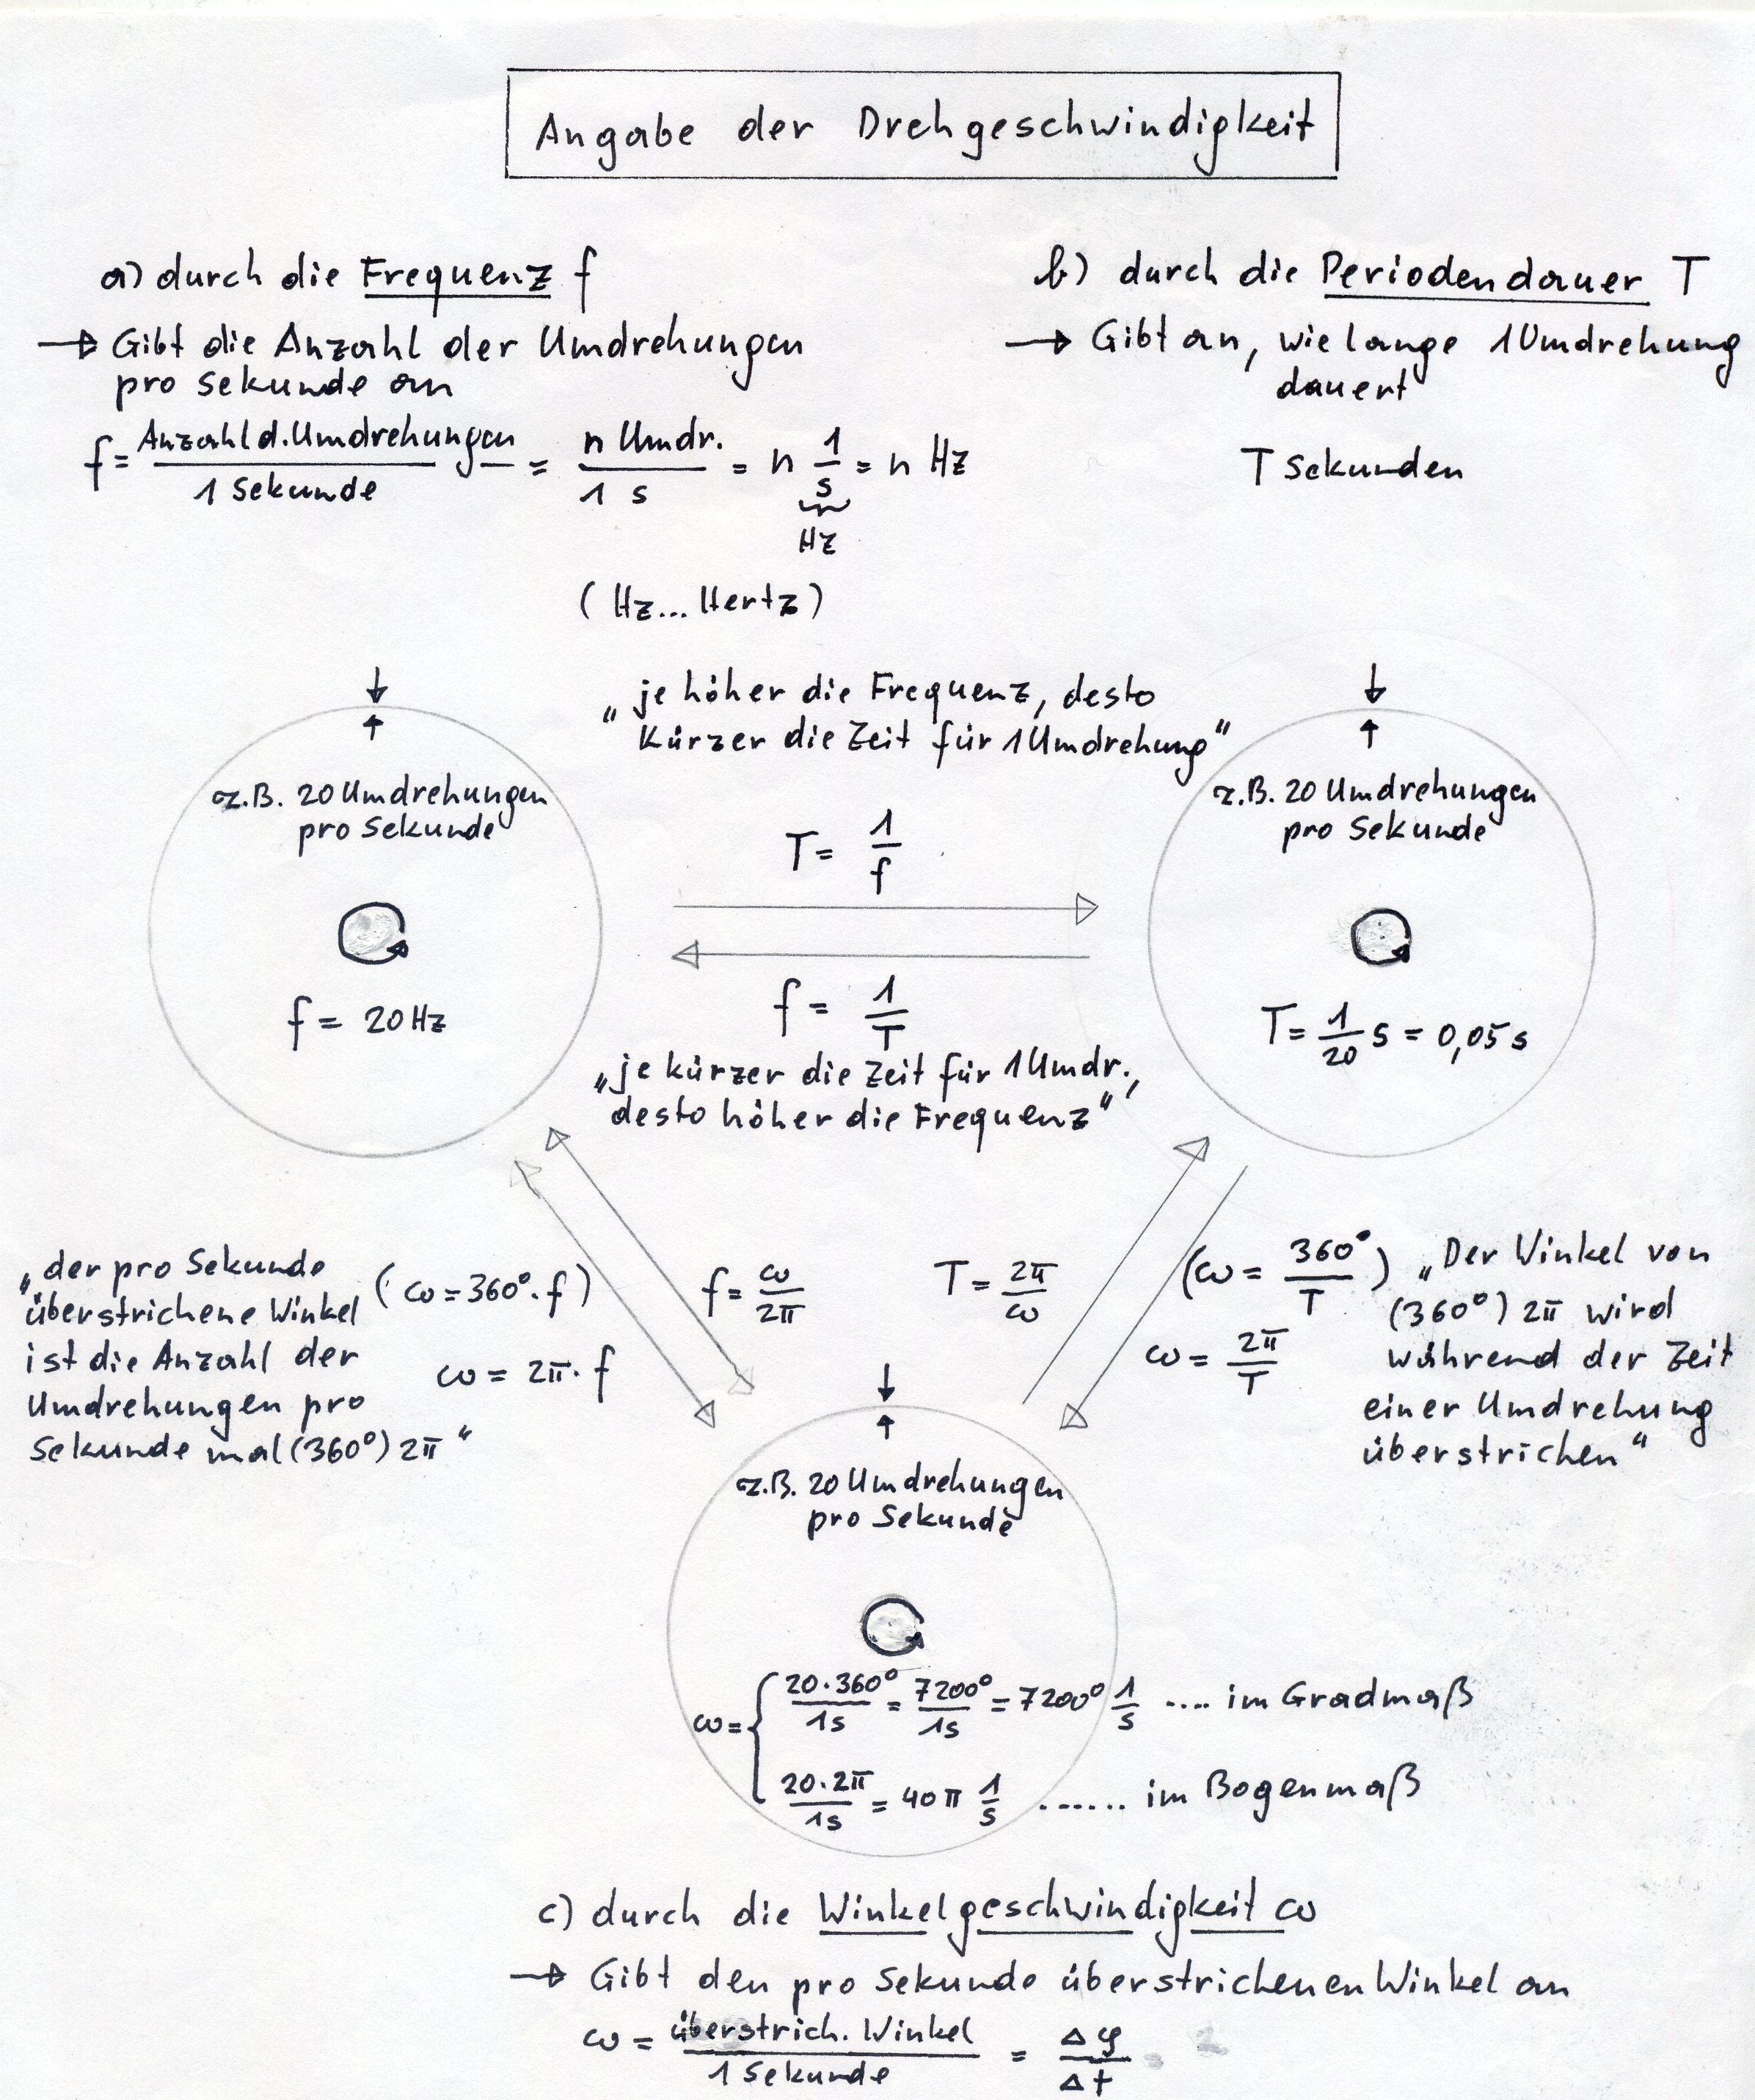 Angabe der Drehgeschwindigkeit
a) durch die Frequenz f
→ Gibt die Anzahl der Umdrehungen
pro Sekunde an
f = Anzahl d. Umdrehungen / 1 Sekunde = n Umdr. / 1 s = n 1/s = n Hz
Hz
(Hz... Hertz)
b) durch die Periodendauer T
→ Gibt an, wie lange 1 Umdrehung
dauert
T Sekunden
z.B. 20 Umdrehungen
pro Sekunde
f = 20 Hz
„je höher die Frequenz, desto
kürzer die Zeit für 1 Umdrehung“
T = 1/f
f = 1/T
„je kürzer die Zeit für 1 Umdr.,
desto höher die Frequenz“
z.B. 20 Umdrehungen
pro Sekunde
T = 1/20 s = 0,05 s
„der pro Sekunde
überstrichene Winkel
ist die Anzahl der
Umdrehungen pro
Sekunde mal (360°) 2π“
(ω = 360° · f)
ω = 2π · f
f = ω/2π
T = 2π/ω
(ω = 360°/T)
ω = 2π/T
„Der Winkel von
(360°) 2π wird
während der Zeit
einer Umdrehung
überstrichen“
z.B. 20 Umdrehungen
pro Sekunde
ω = { 20·360°/1s = 7200°/1s = 7200° 1/s .... im Gradmaß
20·2π/1s = 40π 1/s ...... im Bogenmaß
c) durch die Winkelgeschwindigkeit ω
→ Gibt den pro Sekunde überstrichenen Winkel an
ω = überstrich. Winkel / 1 Sekunde = Δφ/Δt